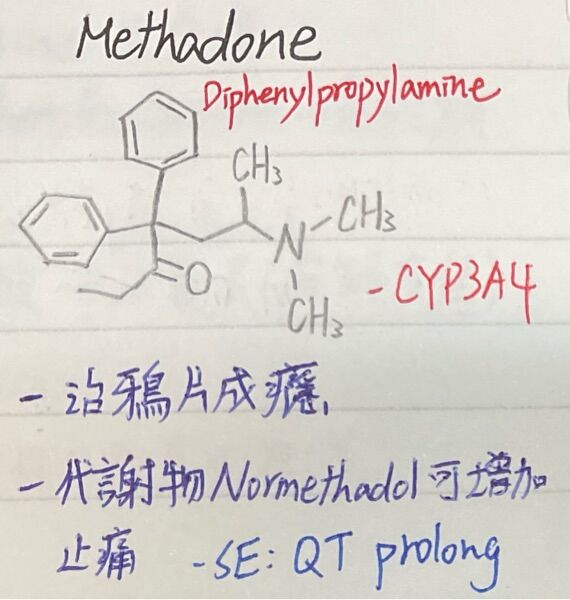 Methadone
Diphenylpropylamine
CH3
N
CH3
O
CH3
- CYP3A4
- 治鴉片成癮
- 代謝物Normethadol可增加
止痛 - SE: QT prolong